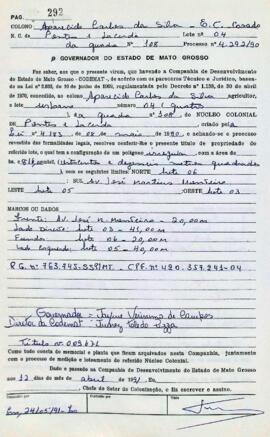 PAG. 292
COLONO Aparecido Carlos da Silva - E.C. Casado
N. C. de Pontes e Lacerda LOTE nº 04
da quadra nº 108 Processo nº 4.292/90
O GOVERNADOR DO ESTADO DE MATO GROSSO
Faz saber, aos que o presente virem, que havendo a Companhia de Desenvolvimento
do Estado de Mato Grosso - CODEMAT -, de acordo com os pareceres Técnico e Jurídico, basea-
dos na Lei nº de junho de 1969, regulamentada pelo Decreto nº 1.138, de 30 de abril
de 1970, concedido, ao Aparecido Carlos da Silva agricultor,
o lote urbano número 04 (quatro)
da quadra nº 108 do NÚCLEO COLONIAL
de Pontes e Lacerda criado pela
Lei nº de 08 de maio 1990, e achando-se o processo
revestido das formalidades legais, resolveu conferir-lhe o presente título de propriedade
referido lote, com a configuração de um polígono irregular, com a área de
(oitocentos e dezesseis metros quadrados
) com os seguintes limites: NORTE lote 06
SUL Av. José Martins Monteiro
LESTE lote 05 OESTE lote 03
MARCOS OU DADOS
Frente: Av. José M. Monteiro - 20,00m
Lado Direito: lote 03 - 41,00m
Fundos: lote 06 - 20,00m
Lado Esquerdo: lote 05 - 40,00m
Governador = Jayme Veríssimo de Campos
Diretor da Codemat =
Título nº
Tudo como consta do memorial e planta que ficam arquivados nesta Companhia, juntamente
com o processo de medição e loteamento do referido Núcleo Colonial.
Dado e passado na Companhia de Desenvolvimento do Estado de Mato Grosso
aos 12 dias do mês de abril de 1991. Eu
, Chefe do Setor de Colonização, o fiz escrever e assino.
24/05/91